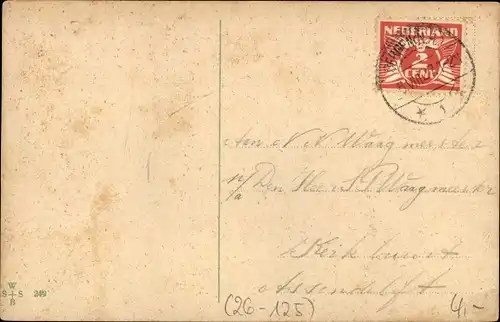 NEDERLAND
2
CENT
1
Aan N N Waagmeester
p/a Den Heer P Waagmeester
Kerkbuurt
Assendelft
W
S+S 249
B
(26-125)
4,-